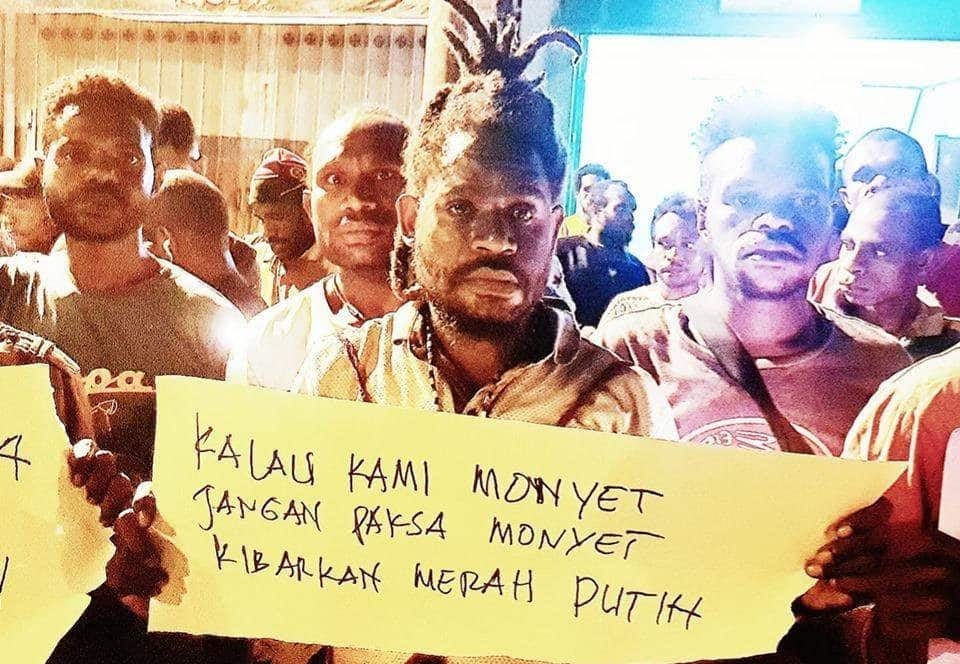 KALAU KAMI MONYET
JANGAN PAKSA MONYET
KIBARKAN MERAH PUTIH